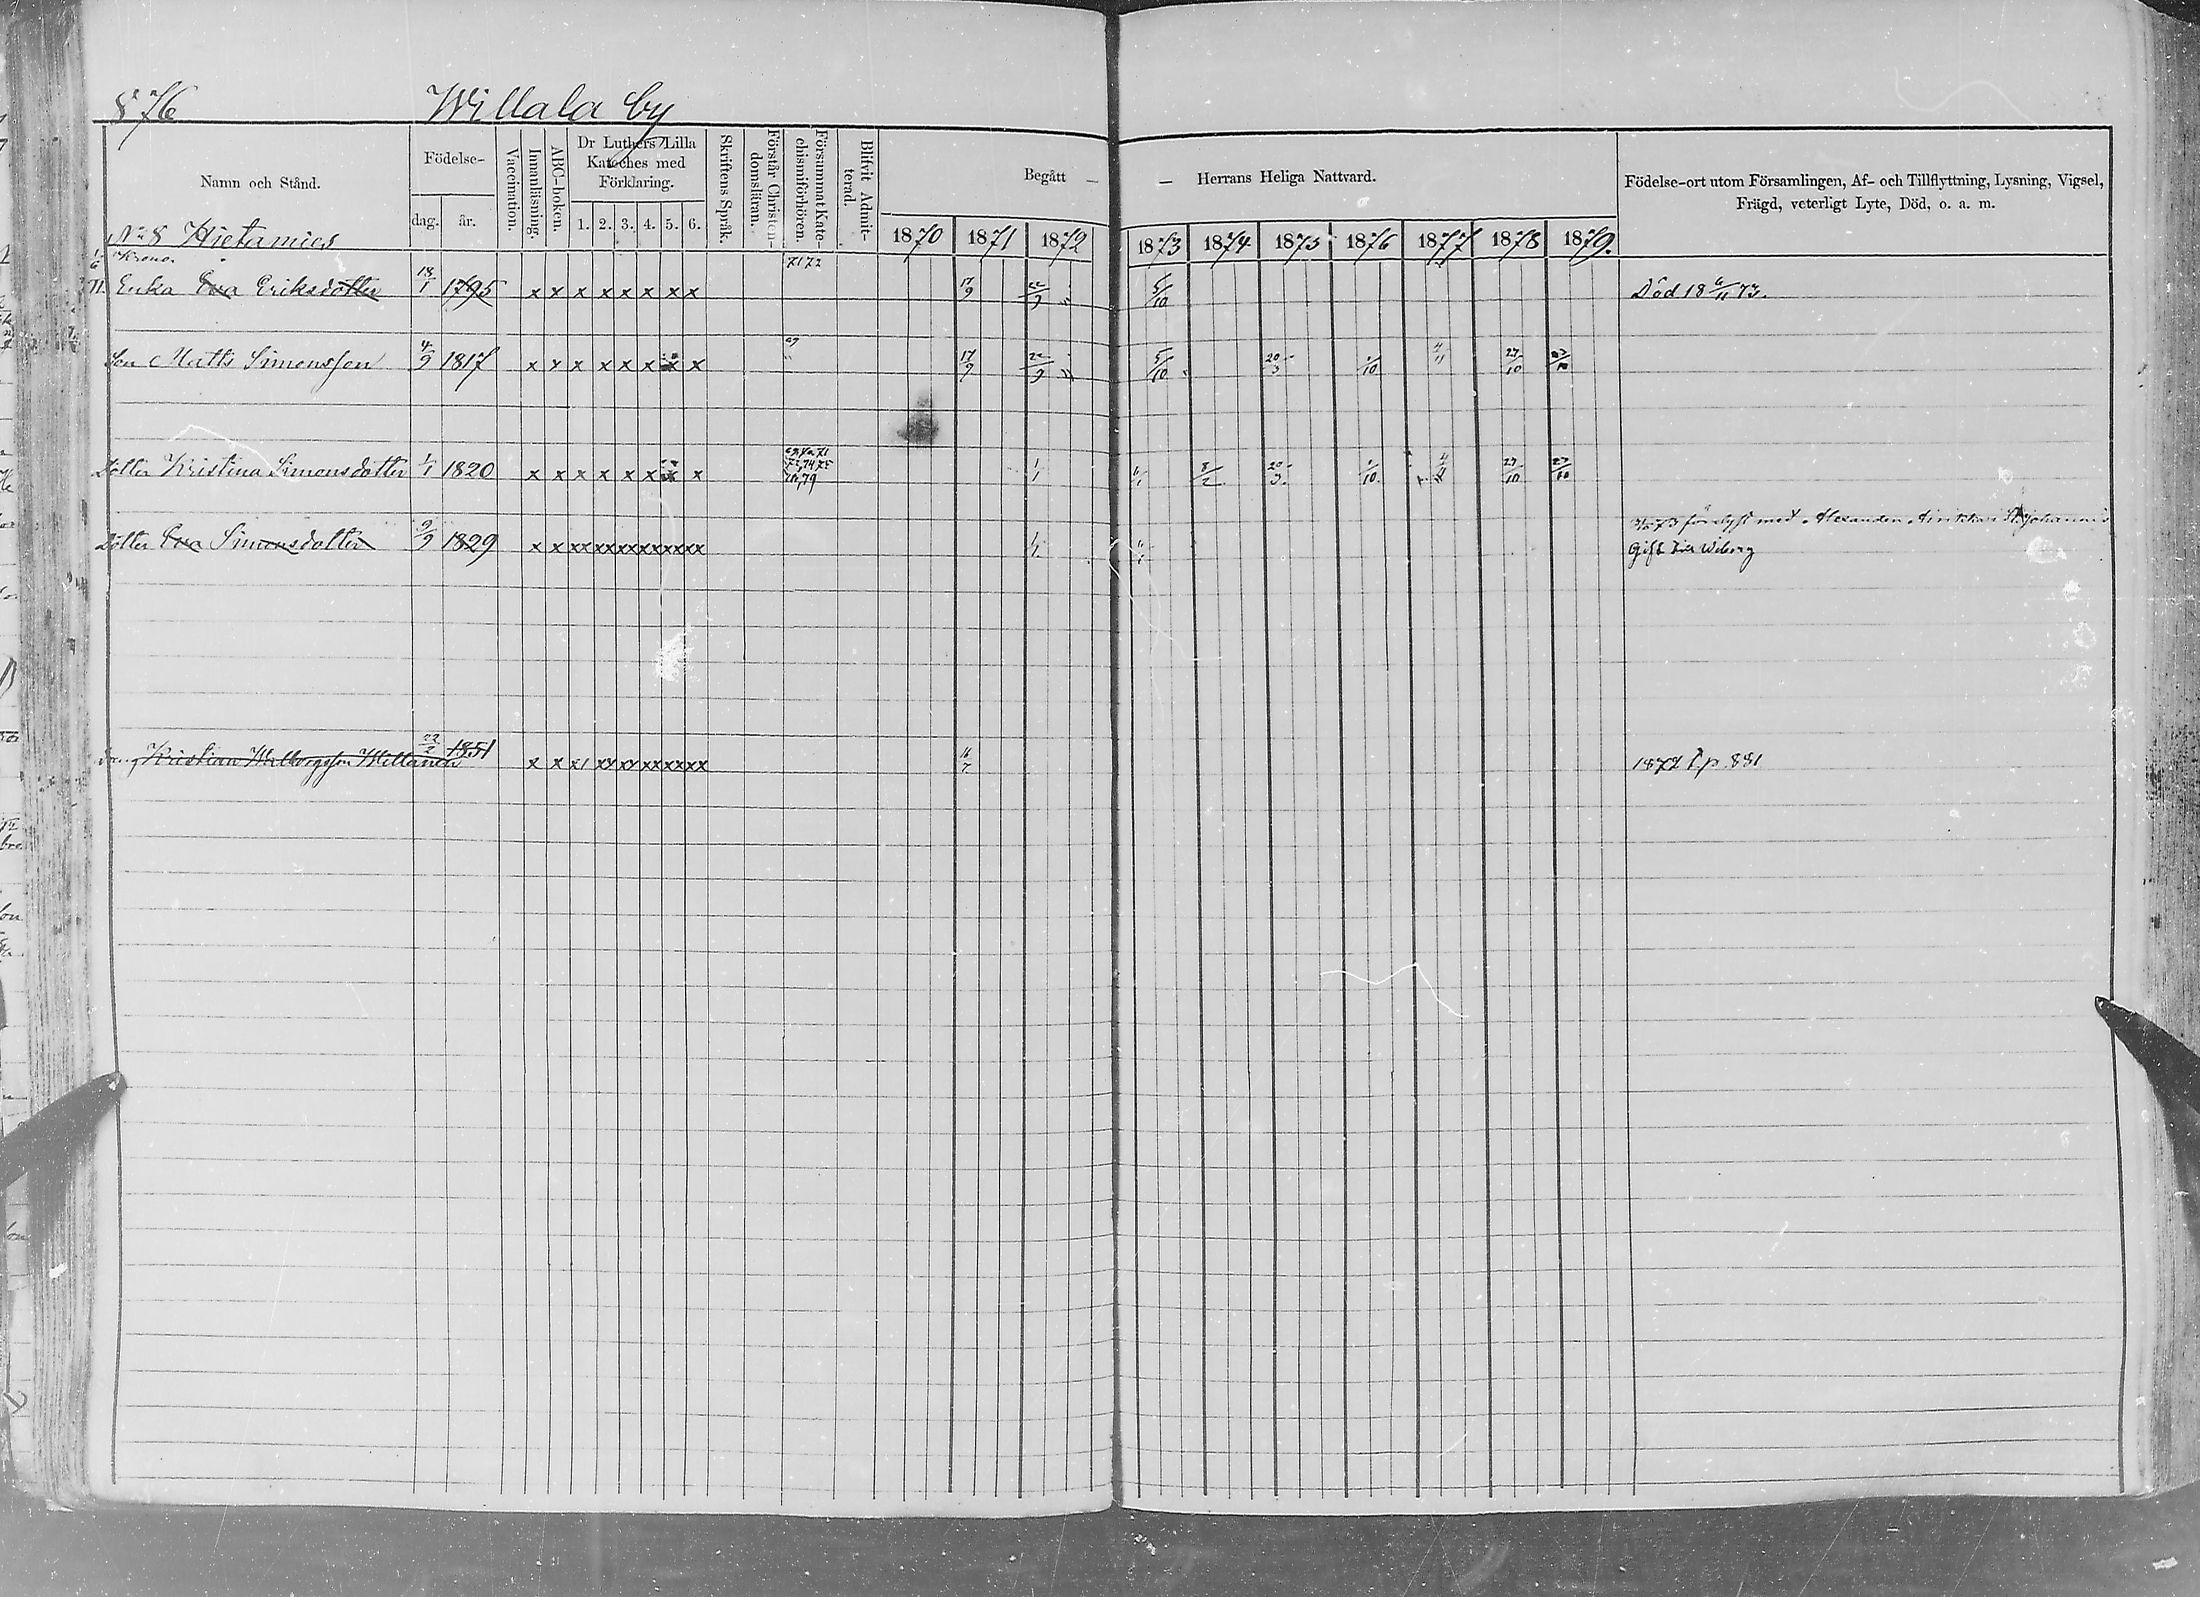 876 Willala by
Namn och Stånd.
Födelse-
dag. år.
Vaccination.
Innanläsning.
ABC-boken.
Dr Luthers Lilla
Kateches med
Förklaring.
1. 2. 3. 4. 5. 6.
Skriftens Språk.
Förstår Christen-
domsläran.
Försummat Kate-
chismiförhören.
Blifvit Admit-
terad.
Begått — — Herrans Heliga Nattvard.
1870 1871 1872 1873 1874 1875 1876 1877 1878 1879.
Födelse-ort utom Församlingen, Af- och Tillflyttning, Lysning, Vigsel,
Frägd, veterligt Lyte, Död, o. a. m.
No 8 Hietamies
Krono
Enka Eva Eriksdotter 18/1 1795 x x x x x x x x 71 72 17/9 22/9 5/10 Död 18 6/11 73.
Son Matts Simonsson 4/9 1817 x x x x x x x x 17/9 22/9 5/10 20/3 1/10 4/11 27/10 27/10
Dotter Kristina Simonsdotter 1/1 1820 x x x x x x x x 1/1 1/1 8/2 20/3 1/10 27/10 27/10
Dotter Eva Simonsdotter 9/9 1829 x x xx xx xx xx xx xx 1/1 1/1 73 förelyst med Alexander St Johannis
Gift till Wiborg
Kristian Walborgsson Willanen 22/2 1851 x x 1872 T. p. 881